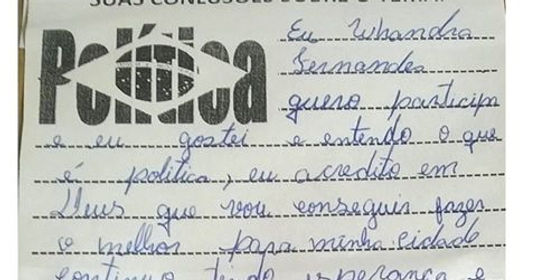 SUAS CONCLUSÕES SOBRE O TEMA:
Política
Eu Whandra
Fernandes
quero particip
e eu gostei e entendo o que
é politica, eu acredito em
Deus que vou conseguir fazer
o melhor papa minha cidade
continuo tendo esperança e